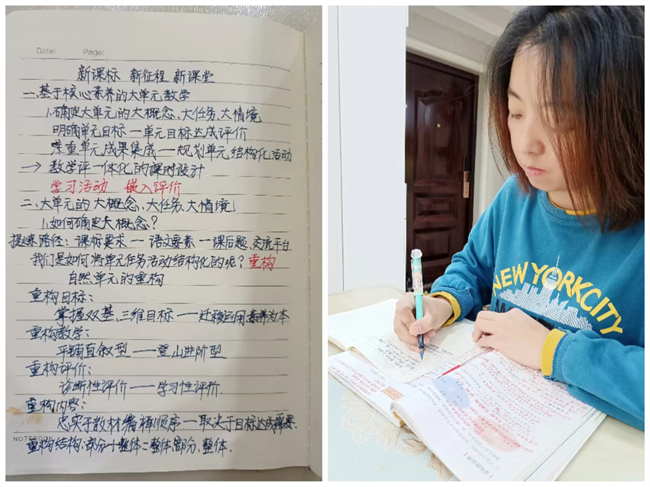 Date:     Page:
新课标 新征程 新课堂
一、基于核心素养的大单元教学
1.确定大单元的大概念、大任务、大情境
明确单元目标一单元目标达成评价
单元成果集成一规划单元结构化活动
→教学评一体化的课时设计
学习活动 嵌入评价
二、大单元的大概念、大任务、大情境
1.如何确定大概念?
提炼路径:课标要求一语文要素一课后题、交流平台
我们是如何将单元任务活动结构化的呢?重构
自然单元的重构
重构目标:
掌握双基、三维目标——迁移运用素养为本
重构教学:
平铺直叙型——登山进阶型
重构评价:
诊断性评价——学习性评价.
重构内容:
忠实于教材编排顺序一取决于目标达成需要.
NOTE
重构结构:部分+整体=整体、部分、整体.
NEW YORK CITY